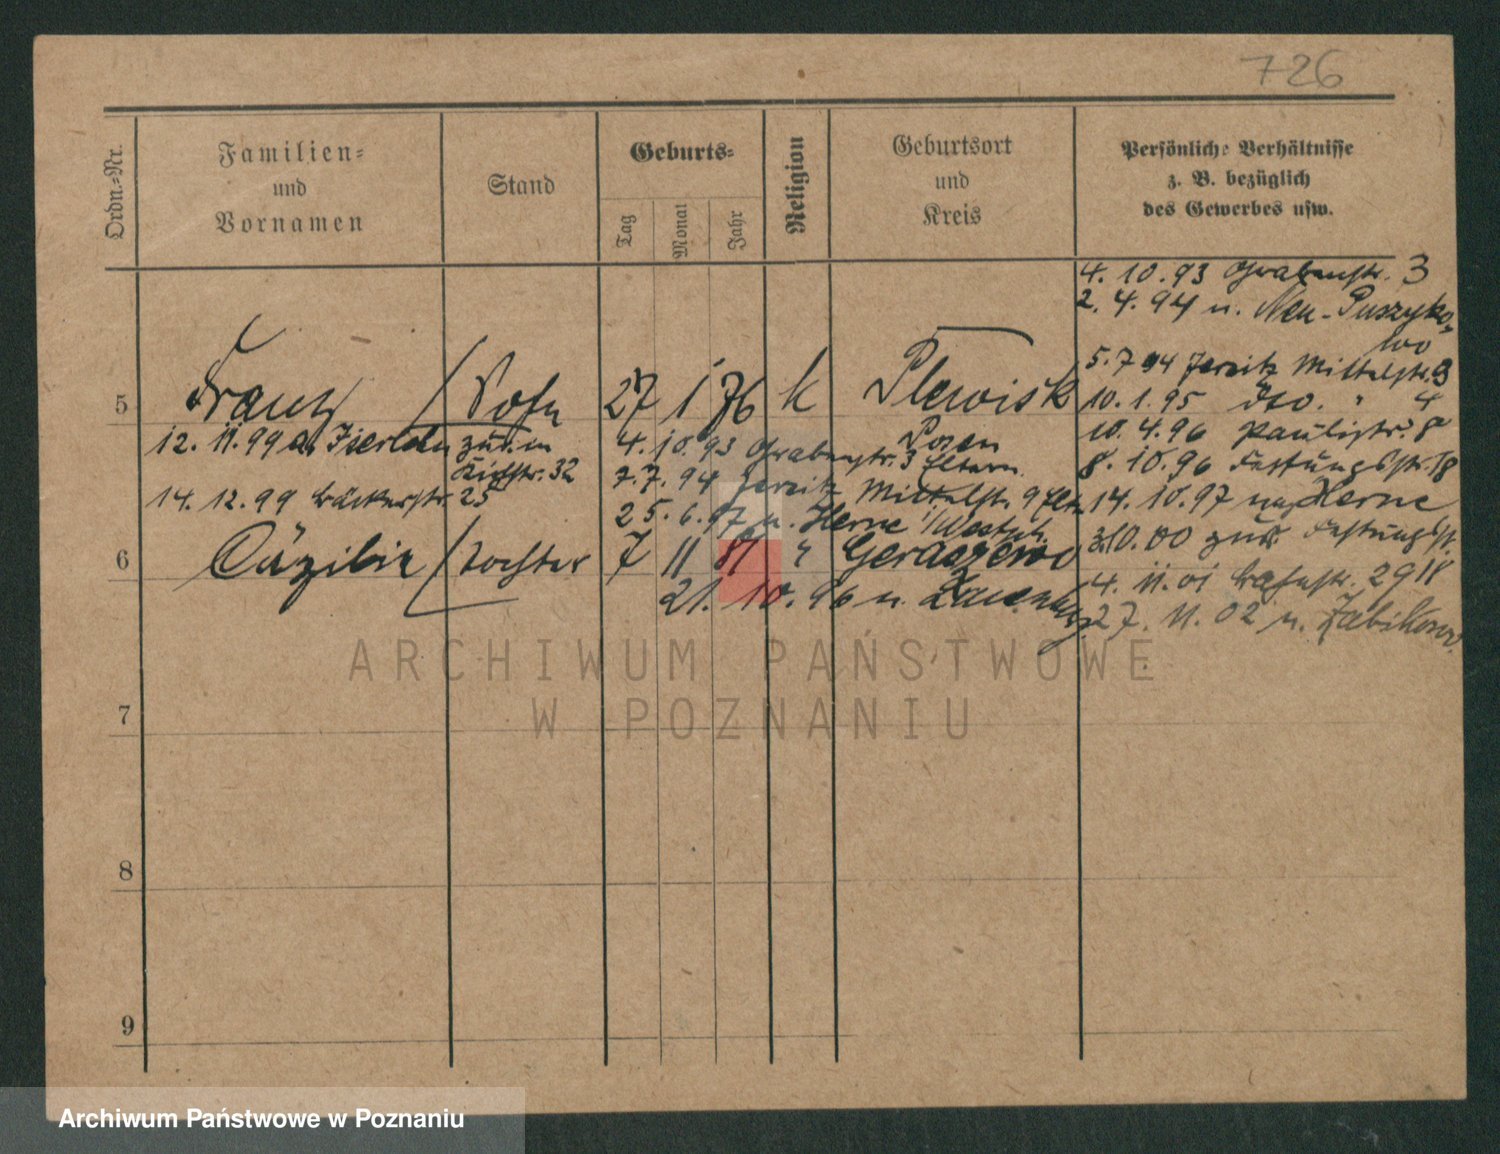 726
Ordn.-Nr.
Familien-
und
Vornamen
Stand
Geburts-
Tag
Monat
Jahr
Religion
Geburtsort
und
Kreis
Persönliche Verhältnisse
z. B. bezüglich
des Gewerbes usw.
4. 10. 93 Grabenstr. 3
2. 4. 94 n. Neu-Puszyko-
wo
5. 7 94 Jersitz Mittelstr. 9
5 Franz Sohn 27 1 76 k Plewisk
Posen
10. 1. 95 Dto. " 4
10. 4. 96 Paulistr. 8
8. 10. 96 Festungsstr. 18
14. 10. 97 nach Herne
3.10.00 zur. Festungsstr.
18
4. 11. 01 Bahnstr. 29
27. 11. 02 n. Zabikowo
12. 11. 99 a. Iserlohn zur. n
Kirchstr. 32
14. 12. 99 Bäckerstr. 25
4. 10. 93 Grabenstr. 3 Eltern
7. 7. 94 Jersitz Mittelstr. 9 Elt.
25. 6. 97 n. Herne i/Westph.
6 Cäzilie Tochter 7 11 81 " Geraszewo
21. 10. 96 n.
7
8
9
ARCHIWUM PAŃSTWOWE
W POZNANIU
Archiwum Państwowe w Poznaniu